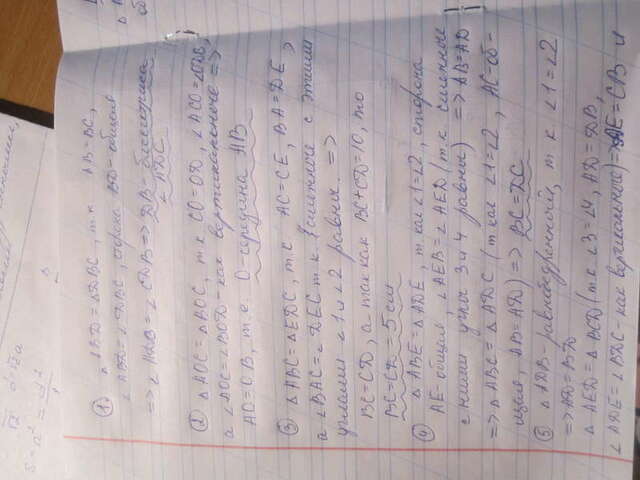 √2 d=√2a
S=a² =
① △ABD=△DBC, т.к AB=BC,
∠ABD=∠DBC, сторона BD-общая
=> ∠ADB=∠CDB=> DB-биссектриса
∠ADC
② △AOC=△BOC, т.к. CO=OD, ∠ACO=∠ODB,
а ∠AOC=∠BOD-как вертикальные =>
AO=OB, т.е. O-середина AB
③ △ABC=△EDC, т.к AC=CE, BA=DE,
а ∠BAC=∠DEC т.к. смежные с этими
углами ∠1 и ∠2 равны. =>
BC=CD, а так как BC+CD=10, то
BC=CD=5см
④ △ABE=△ADE, т.к ∠1=∠2, сторона
AE-общая, ∠AEB=∠AED (т.к. смежные
с ними углы 3 и 4 равны) => AB=AD
=> △ABC=△ADC (т.к ∠1=∠2, AC-об-
щая, AB=AD) => BC=DC
⑤ △ADB-равнобедренный, т к ∠1=∠2
=> AD=BD
△AED=△BCD (т.к ∠3=∠4, AD=DB,
∠ADE=∠BDC-как вертикальные)=> AE=CB и